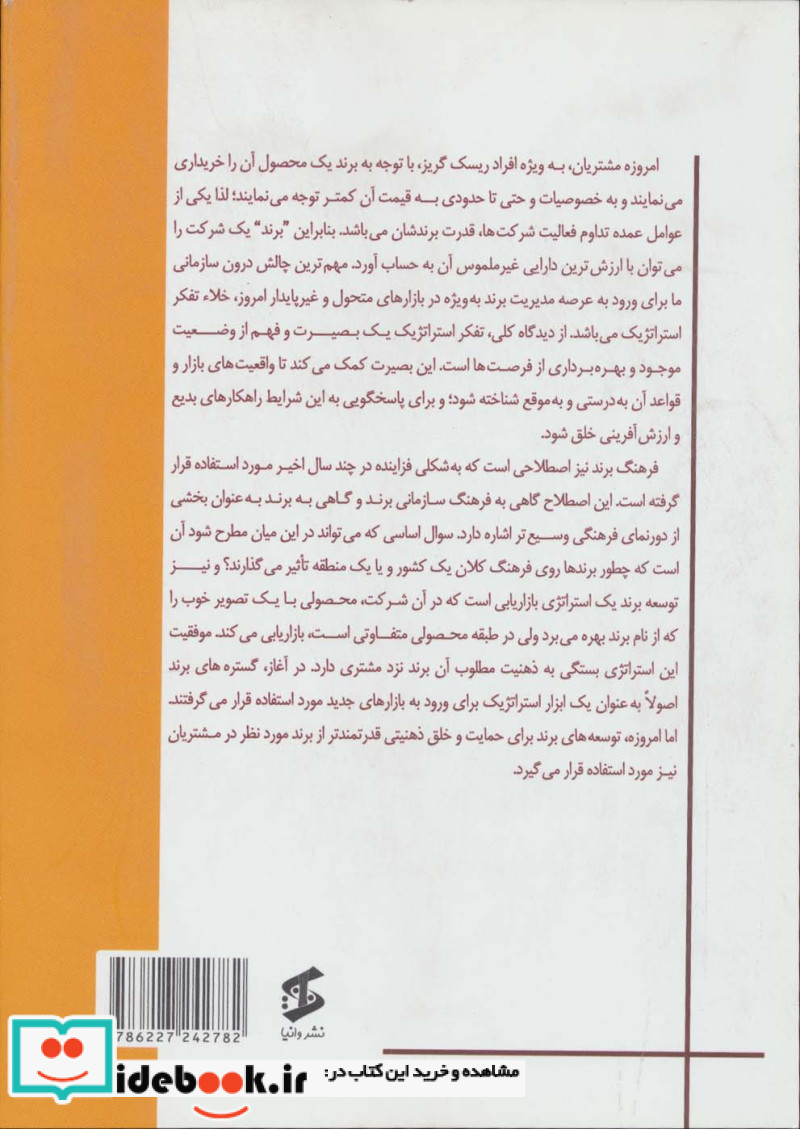 امروزه مشتریان، به ویژه افراد ریسک گریز، با توجه به برند یک محصول آن را خریداری
می‌نمایند و به خصوصیات و حتی تا حدودی به قیمت آن کمتر توجه می‌نمایند؛ لذا یکی از
عوامل عمده تداوم فعالیت شرکت‌ها، قدرت برندشان می‌باشد. بنابراین "برند" یک شرکت را
می‌توان با ارزش‌ترین دارایی غیرملموس آن به حساب آورد. مهم‌ترین چالش درون سازمانی
ما برای ورود به عرصه مدیریت برند به‌ویژه در بازارهای متحول و غیرپایدار امروز، خلاء تفکر
استراتژیک می‌باشد. از دیدگاه کلی، تفکر استراتژیک یک بصیرت و فهم از وضعیت
موجود و بهره‌برداری از فرصت‌ها است. این بصیرت کمک می‌کند تا واقعیت‌های بازار و
قواعد آن به‌درستی و به‌موقع شناخته شود؛ و برای پاسخگویی به این شرایط راهکارهای بدیع
و ارزش‌آفرینی خلق شود.
فرهنگ برند نیز اصطلاحی است که به‌شکلی فزاینده در چند سال اخیر مورد استفاده قرار
گرفته است. این اصطلاح گاهی به فرهنگ سازمانی برند و گاهی به برند به‌عنوان بخشی
از دورنمای فرهنگی وسیع‌تر اشاره دارد. سوال اساسی که می‌تواند در این میان مطرح شود آن
است که چطور برندها روی فرهنگ کلان یک کشور و یا یک منطقه تأثیر می‌گذارند؟ و نیز
توسعه برند یک استراتژی بازاریابی است که در آن شرکت، محصولی با یک تصویر خوب را
که از نام برند بهره می‌برد ولی در طبقه محصولی متفاوتی است، بازاریابی می‌کند. موفقیت
این استراتژی بستگی به ذهنیت مطلوب آن برند نزد مشتری دارد. در آغاز، گستره های برند
اصولاً به عنوان یک ابزار استراتژیک برای ورود به بازارهای جدید مورد استفاده قرار می‌گرفتند.
اما امروزه، توسعه‌های برند برای حمایت و خلق ذهنیتی قدرتمندتر از برند مورد نظر در مشتریان
نیز مورد استفاده قرار می‌گیرد.
نشر وانیا
786227 242782
مشاهده و خرید این کتاب در:
idebook.ir